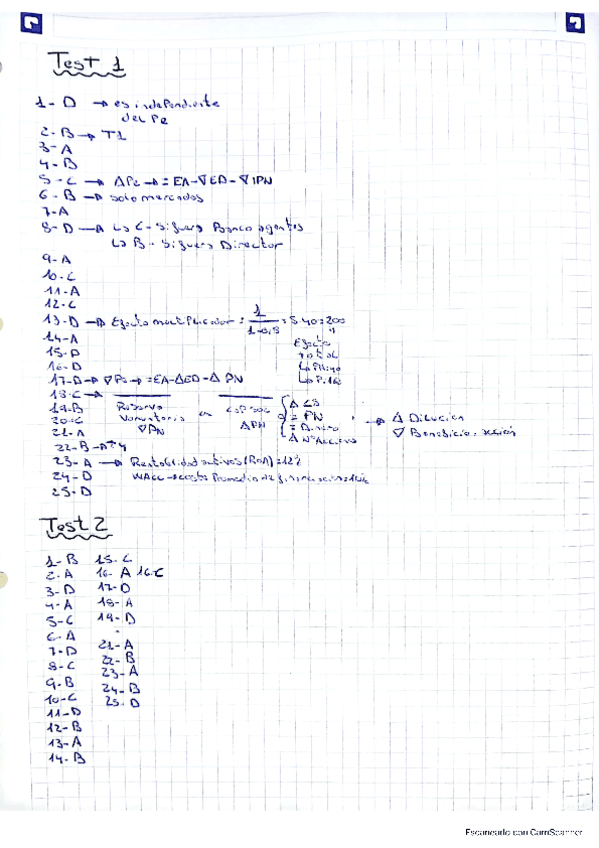 Test 1
1- D → es independiente
del Pe
2- B → T1
3- A
4- B
5- C → ΔPe → = EA-∇ED-∇IPN
6- B → solo mercados
7- A
8- D → La C- Banco agentes
La B- Director
9- A
10- C
11- A
12- C
13- D → Efecto multiplicador = 1/1-0,8 = 5·40=200
14- A
15- D
16- D
17- D → ∇Pe → = EA-ΔED-Δ PN
18- C →
19- B
20- C
21- A
Reserva
Voluntaria
∇PN
en
Cap Soc
ΔPN
Δ CS
= PN
= Dinero
→ Δ Dilución
∇ Beneficio
22- B
23- A → Rentabilidad activos (ROA) = 12%
24- D WACC → coste promedio de
25- D
Test 2
1- B
2- A
3- D
4- A
5- C
6- A
7- D
8- C
9- B
10- C
11- D
12- B
13- A
14- B
15- C
16- A 16-C
17- D
18- A
19- D
21- A
22- B
23- A
24- B
25- D
Escaneado con CamScanner